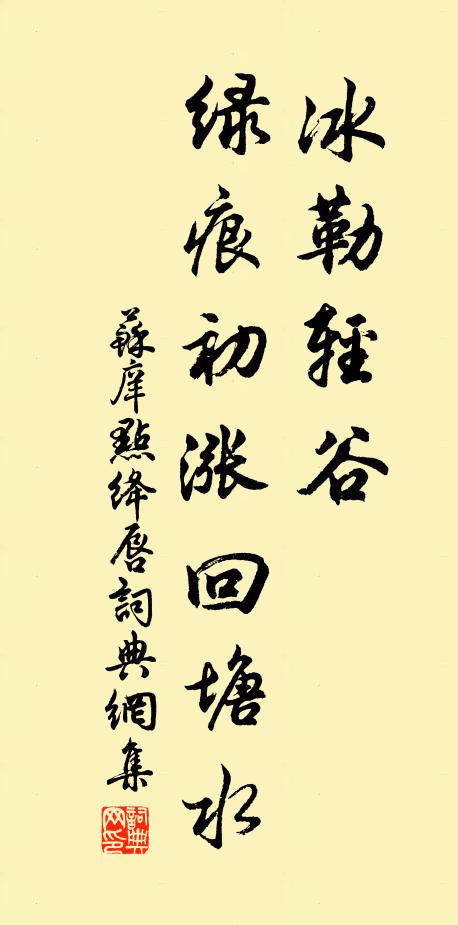 冰勒轻谷
绿痕初涨回塘水
蘇庠點绛唇詞典網集
詞典網印